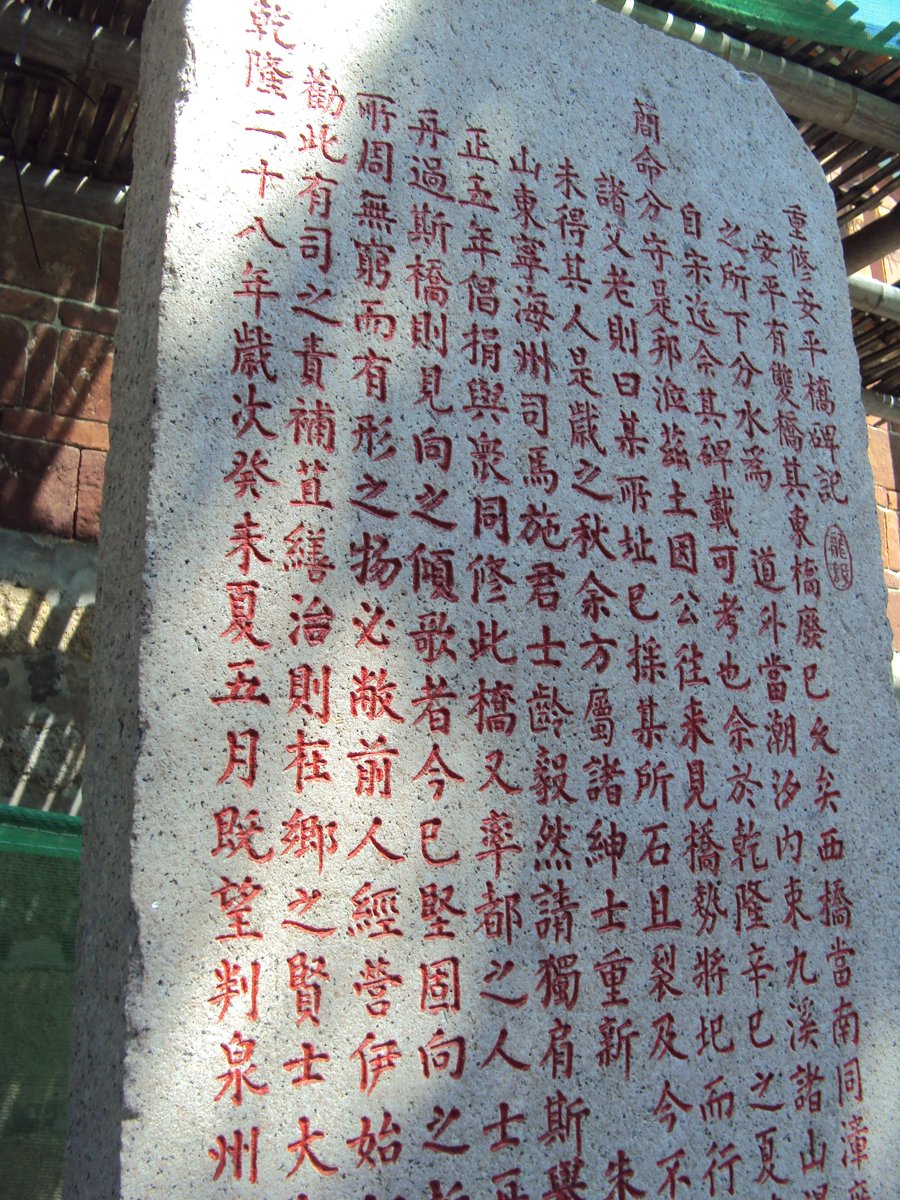 重修安平橋碑記
龍錕
安平有雙橋其東橋廢已久矣西橋當南同漳
之所下分水為　道外當潮汐內束九溪諸山
自宋迄余其碑載可考也余於乾隆辛巳之夏
簡命分守是邦涖茲土因公往来見橋勢將圯而行
諸父老則曰某所址已揉某所石且裂及今不
未得其人是歲之秋余方屬諸紳士重新　朱
山東寧海州司馬施君士齡毅然請獨肩斯舉
正五年倡捐與衆同修此橋又率都之人士
再過斯橋則見向之傾歌者今已堅固向之
所周無窮而有形之物必敝前人經營伊始
勸此有司之責補苴繕治則在鄉之賢士大
乾隆二十八年歲次癸未夏五月既望判泉州